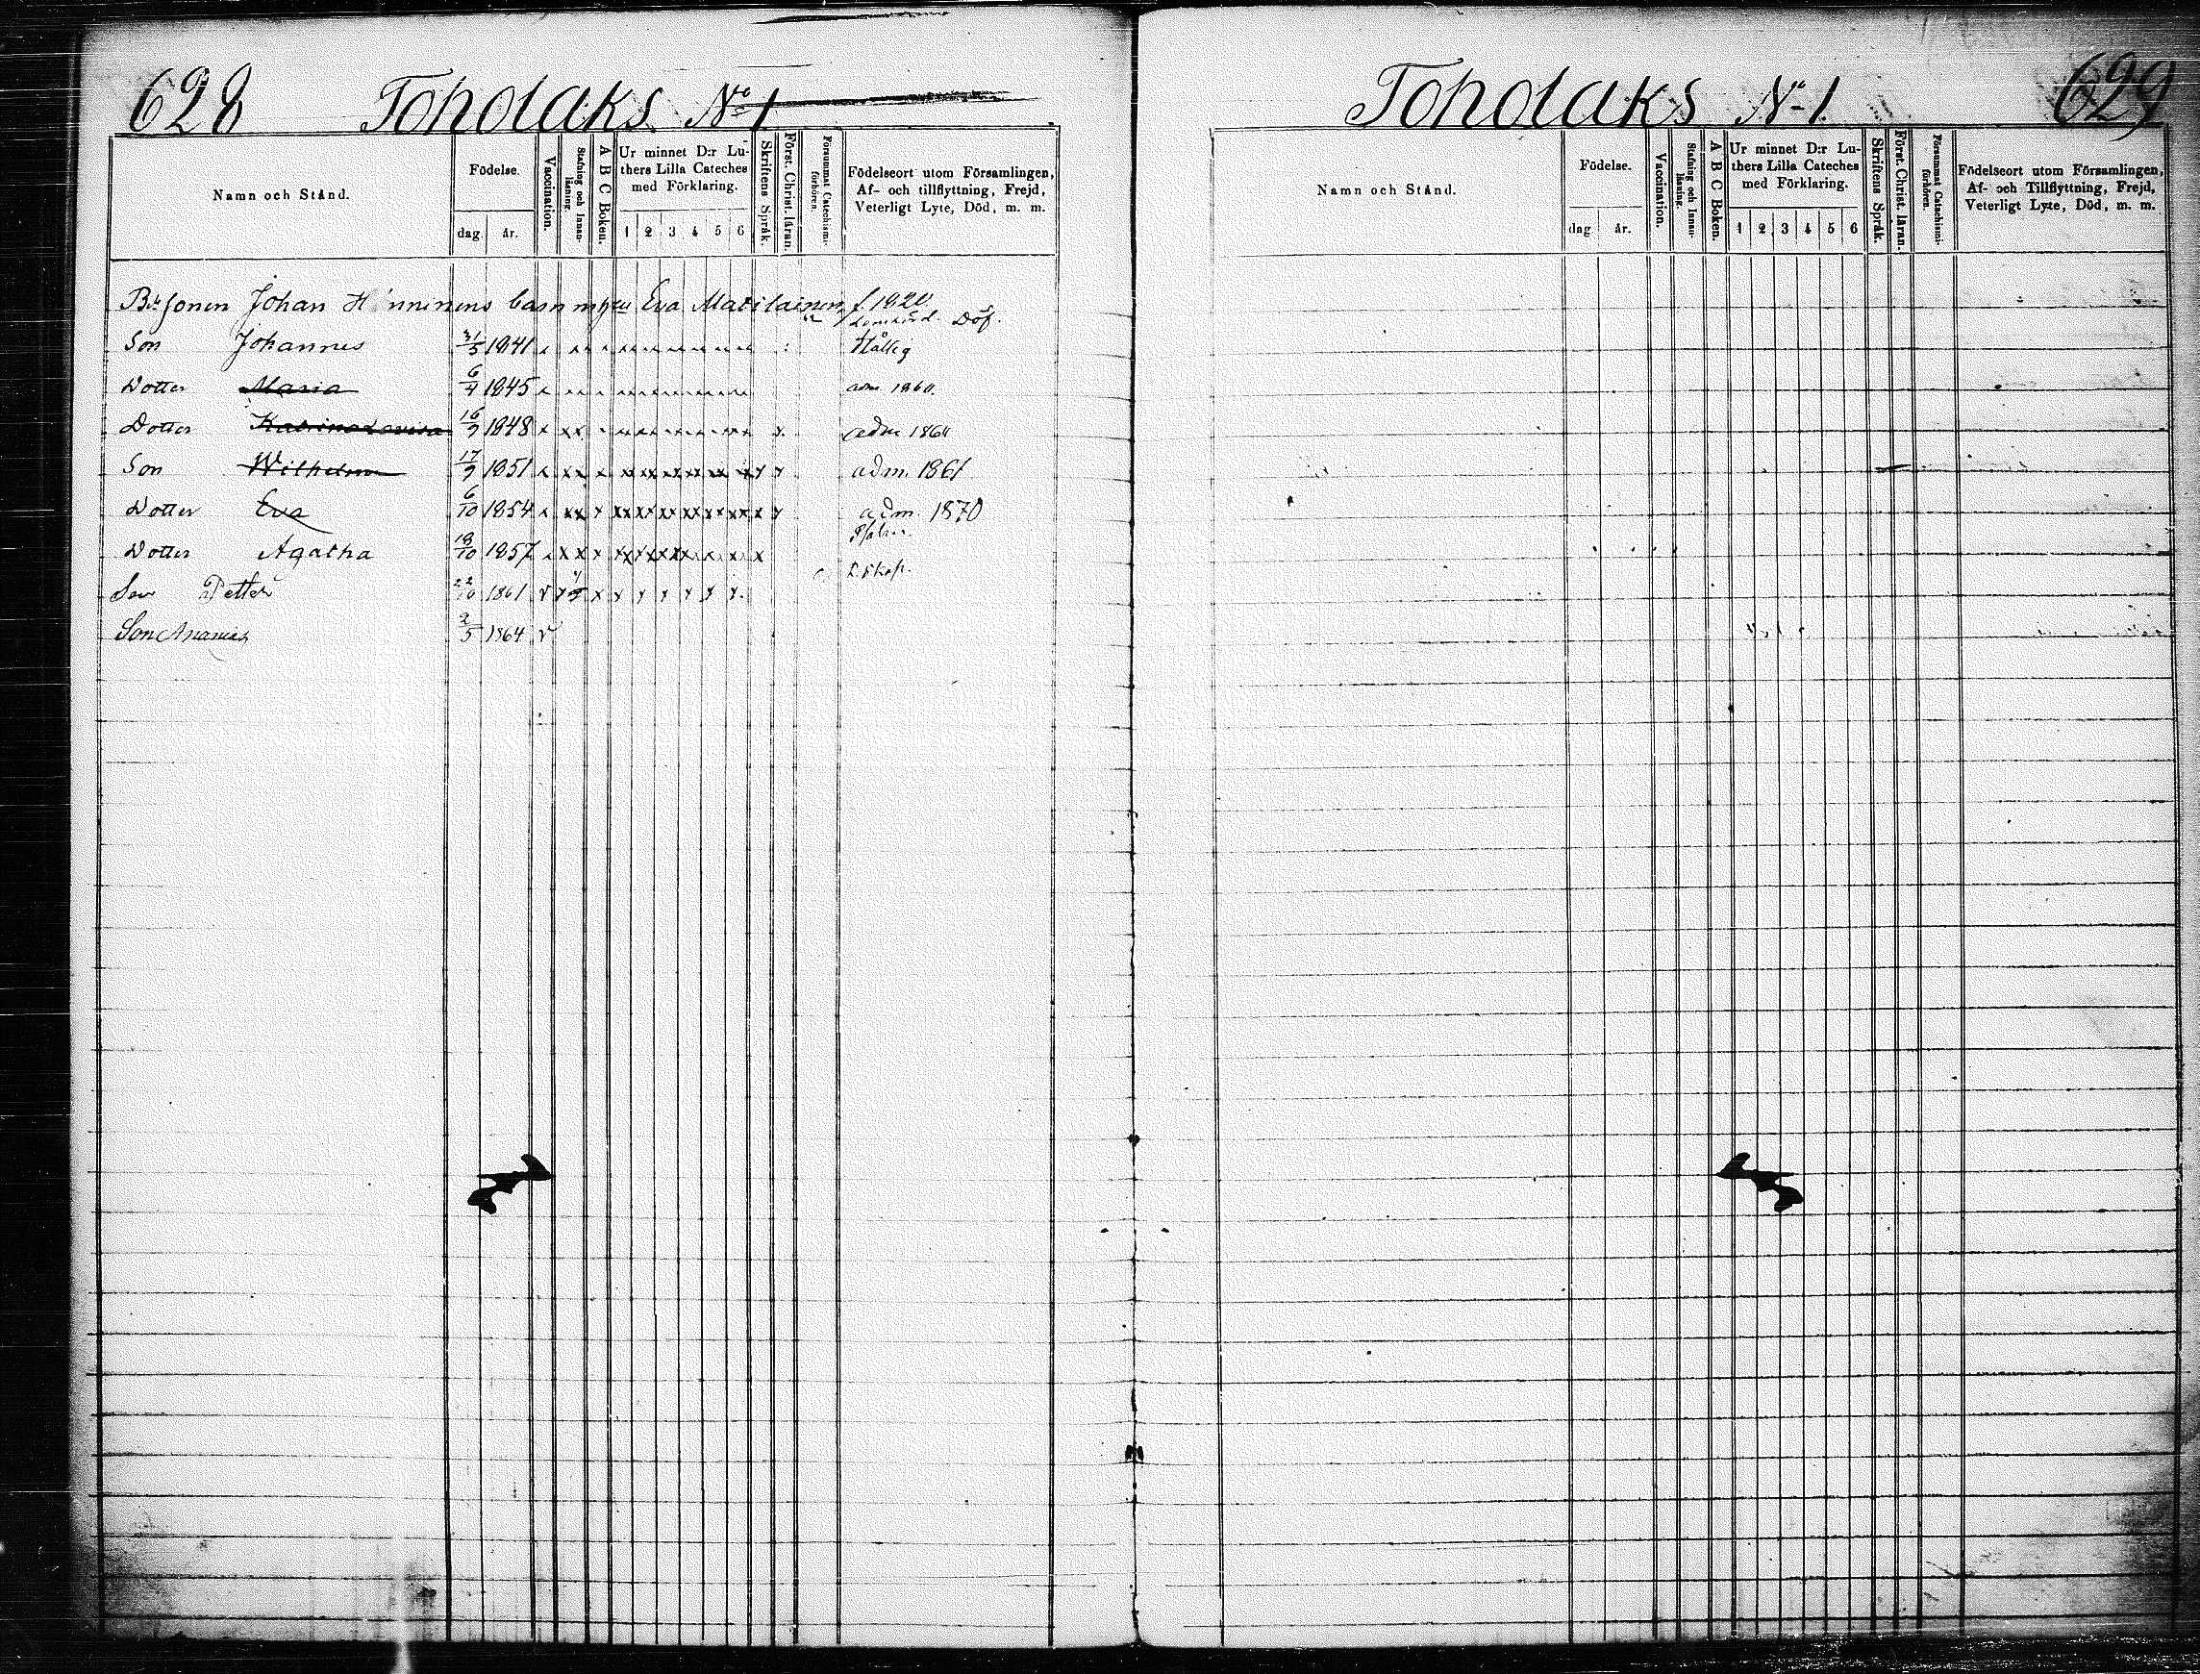 628 Toholaks No 1
Namn och Stånd.
Födelse.
dag. år.
Vaccination.
Stafning och Innan-läsning.
A B C Boken.
Ur minnet D:r Lu-
thers Lilla Cateches
med Förklaring.
1 2 3 4 5 6
Skriftens Språk.
Först. Christ. läran.
Försummat Catechismi-förhören.
Födelseort utom Församlingen,
Af- och tillflyttning, Frejd,
Veterligt Lyte, Död, m. m.
Johan Hinninens barn Eva Matilainen f. 1820
Döf.
Son Johannes 31/5 1841
Dotter Maria 6/4 1845 adm 1860.
Dotter Katrina Lovisa 16/9 1848 adm 1864
Son Wilhelm 17/9 1851 adm. 1867
Dotter Eva 6/10 1854 adm. 1870
Dotter Agatha 18/10 1857
Son Petter 22/10 1861
Son Ananias 2/5 1864
Toholaks N-1. 629
Namn och Stånd.
Födelse.
dag år.
Vaccination.
Stafning och Innan-läsning.
A B C Boken.
Ur minnet D:r Lu-
thers Lilla Cateches
med Förklaring.
1 2 3 4 5 6
Skriftens Språk.
Först. Christ. läran.
Försummat Catechismi-förhören.
Födelseort utom Församlingen,
Af- och Tillflyttning, Frejd,
Veterligt Lyte, Död, m. m.